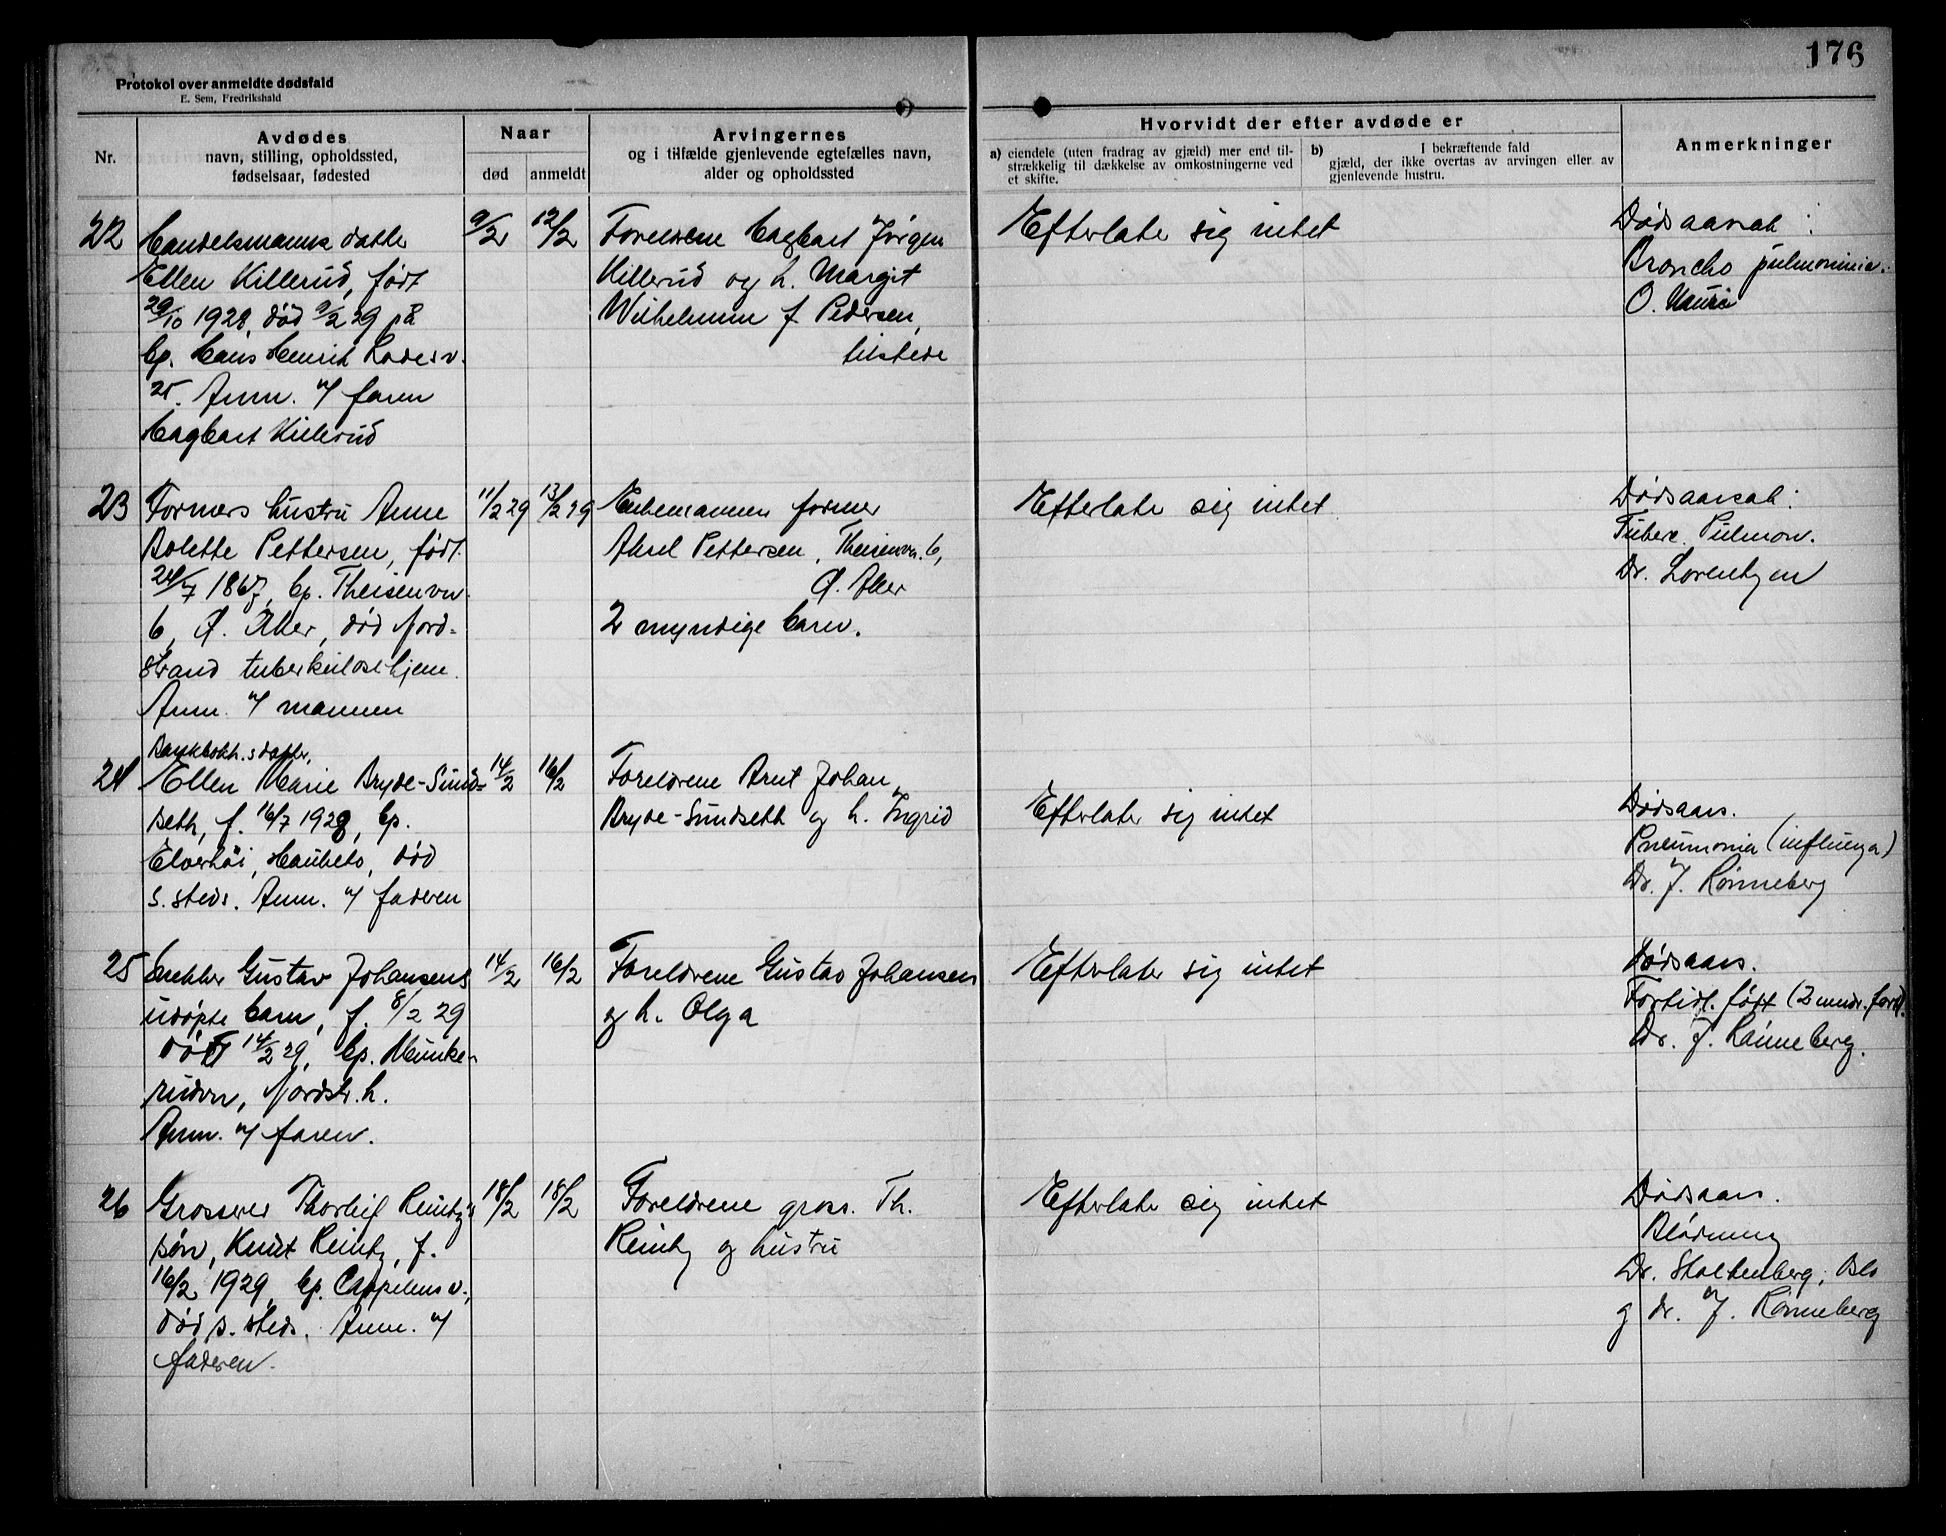 176
Protokol over anmeldte dødsfald
E. Sem, Fredrikshald
Nr.
Avdødes
navn, stilling, opholdssted,
fødselsaar, fødested
Naar
død
anmeldt
Arvingernes
og i tilfælde gjenlevende egtefælles navn,
alder og opholdssted
Hvorvidt der efter avdøde er
a) eiendele (uten fradrag av gjæld) mer end til-
strækkelig til dækkelse av omkostningerne ved
et skifte.
b) I bekræftende fald
gjæld, der ikke overtas av arvingen eller av
gjenlevende hustru.
Anmerkninger
22
Handelsmanns datter
Ellen Killerud, født
29/10 1928, død 9/2 29 på
bp. Hans Henrik
25. Anm. v/ faren
Hagbart Killerud
9/2
12/2
Foreldrene Hagbart Jørgen
Killerud og h. Margit
f. Pedersen,
tilstede
Efterlate sig intet
Dødsaarsak:
Broncho pulmoninia.
O.
23
Formers hustru Anne
Bolette Pettersen, født
24/7 1867, bp. Theisenvn.
6, Ø. Aker, død Nord-
strand tuberkulosehjem.
Anm. v/ mannen
11/2 29
13/2 29
Enkemannen former
Aksel Pettersen, Theisenvn. 6,
Ø. Aker
2 myndige barn.
Efterlate sig intet
Dødsaarsak:
Tuberc. Pulmon.
Dr. Lorentzen
24
Bankbokh.s datter,
Ellen Marie Bryde-Sund-
seth, f. 16/7 1928, bp.
Elverhøi, Hauketo, død
s. steds. Anm. v/ faderen
14/2
16/2
Foreldrene Arnt Johan
Bryde-Sundseth og h. Ingrid
Efterlater sig intet
Dødsaars.
Pneumonia (influenza)
Dr. J. Rønneberg
25
Snekker Gustav Johansens
udøpte barn, f. 8/2 29
død 14/2 29, bp. Munke-
rudvn, Nordstr.h.
Anm. v/ faren.
14/2
16/2
Foreldrene Gustav Johansen
og h. Olga
Efterlater sig intet
Dødsaars.
Fortidl. født (2 mndr. fortidl.
Dr. J. Rønneberg.
26
Grosserer Thorleif Reintz's
søn, Knut Reintz, f.
16/2 1929, bp. Cappelens v.,
død s. steds. Anm. v/
faderen.
18/2
18/2
Foreldrene gross. Th.
Reintz og hustru
Efterlate sig intet
Dødsaars.
Blødning
Dr. Stoltenberg, Oslo
og dr. J. Rønneberg